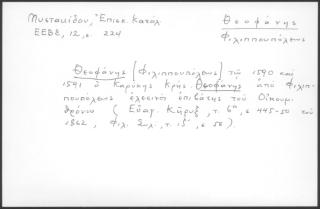 Μυστακίδου, Ἐπισκ. Κατάλ.
ΕΕΒΣ, 12, σ. 224
Θεοφάνης
Φιλιππουπόλεως
Θεοφάνης (Φιλιππουπόλεως) τῷ 1590 καὶ
1591 ὁ Καρύκης Κρής. Θεοφάνης ἀπὸ Φιλιπ-
πουπόλεως ἐλεεινὸς ἐπιβάτης τοῦ Οἰκουμ.
θρόνου ( Εὐαγ. Κῆρυξ, τ. 6ος, σ. 445-50 καὶ
1862, Φιλ. Συλ., τ. , σ. 58 ).